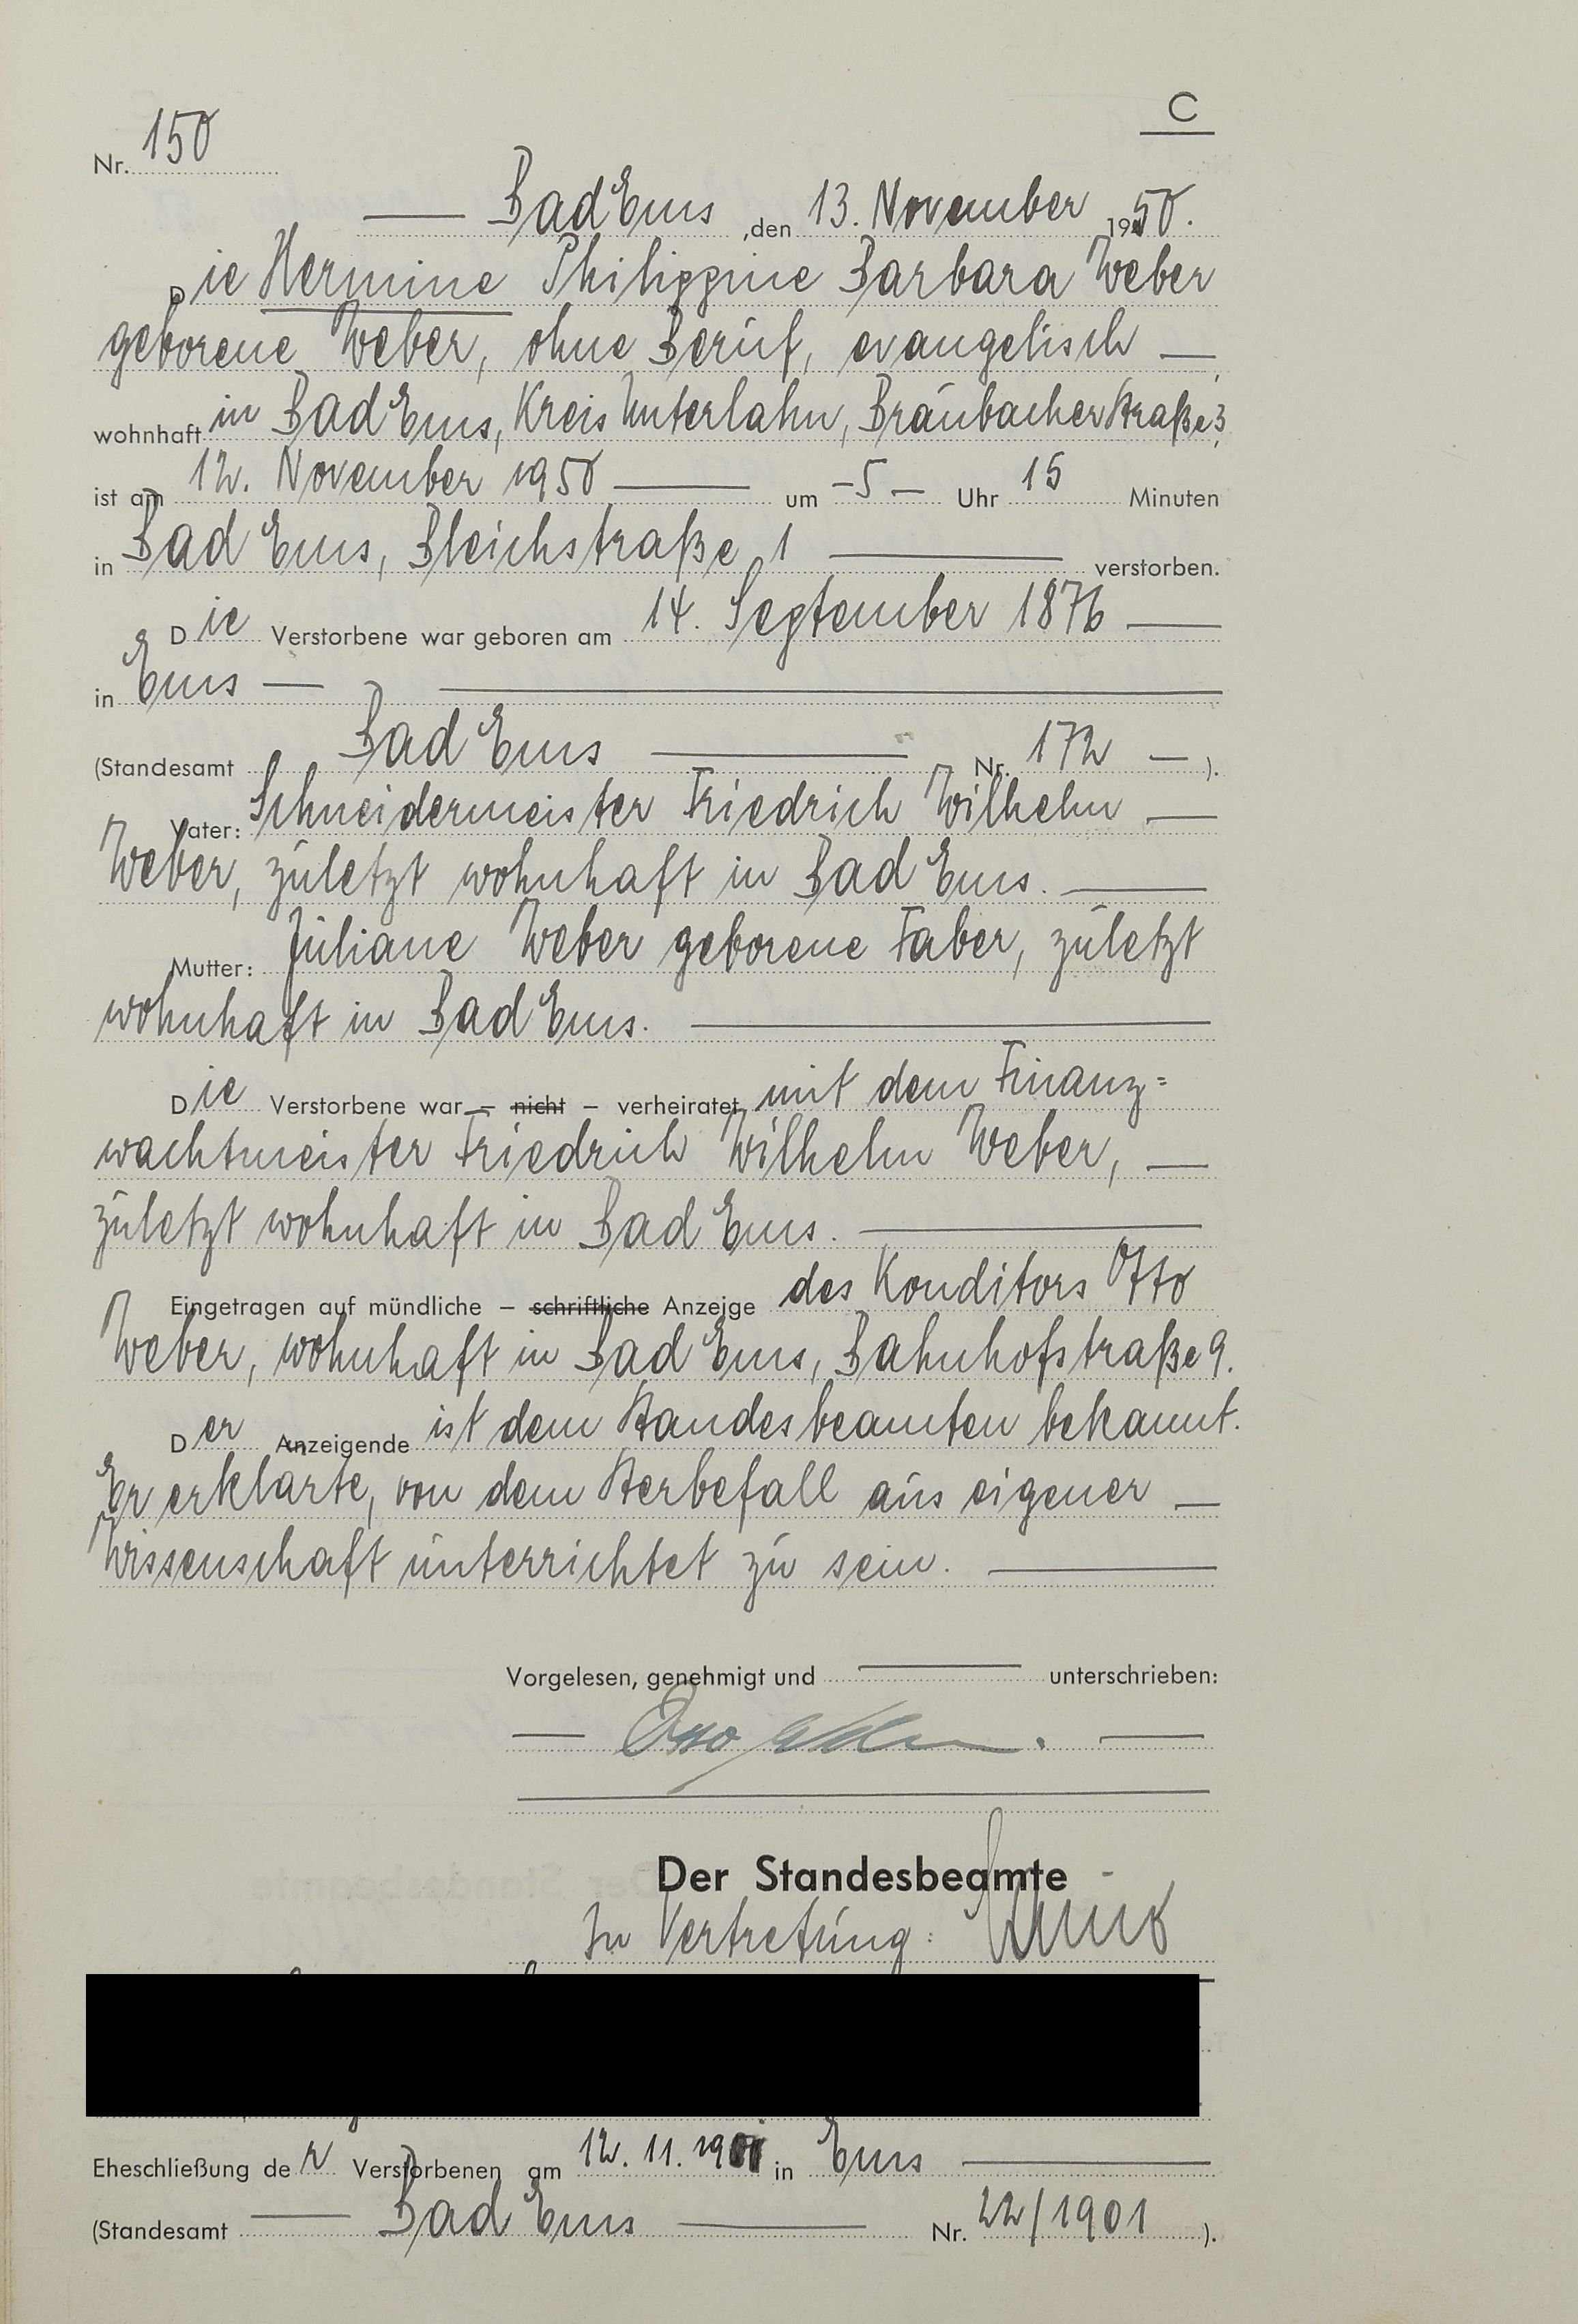 C
Nr. 150
Bad Ems, den 13. November 1950.
Die Hermine Philippine Barbara Weber
geborene Weber, ohne Beruf, evangelisch —,
wohnhaft in Bad Ems, Kreis Unterlahn, Braubacher Straße 3,
ist am 12. November 1950 — um – 5 – Uhr 15 Minuten
in Bad Ems, Bleichstraße 1 — verstorben.
Die Verstorbene war geboren am 14. September 1876 —
in Ems —
(Standesamt Bad Ems — Nr. 172 — ).
Vater: Schneidermeister Friedrich Wilhelm —
Weber, zuletzt wohnhaft in Bad Ems. —
Mutter: Juliane Weber geborene Faber, zuletzt
wohnhaft in Bad Ems. —
Die Verstorbene war – nicht – verheiratet mit dem Finanz=
wachtmeister Friedrich Wilhelm Weber, —
zuletzt wohnhaft in Bad Ems. —
Eingetragen auf mündliche – schriftliche Anzeige des Konditors Otto
Weber, wohnhaft in Bad Ems, Bahnhofstraße 9.
Der Anzeigende ist dem Standesbeamten bekannt.
Er erklärte, von dem Sterbefall aus eigener —
Wissenschaft unterrichtet zu sein. —
Vorgelesen, genehmigt und — unterschrieben:
— Otto Weber. —
Der Standesbeamte
In Vertretung:
Eheschließung der Verstorbenen am 12. 11. 1901 in Ems —
(Standesamt — Bad Ems — Nr. 22/1901 ).